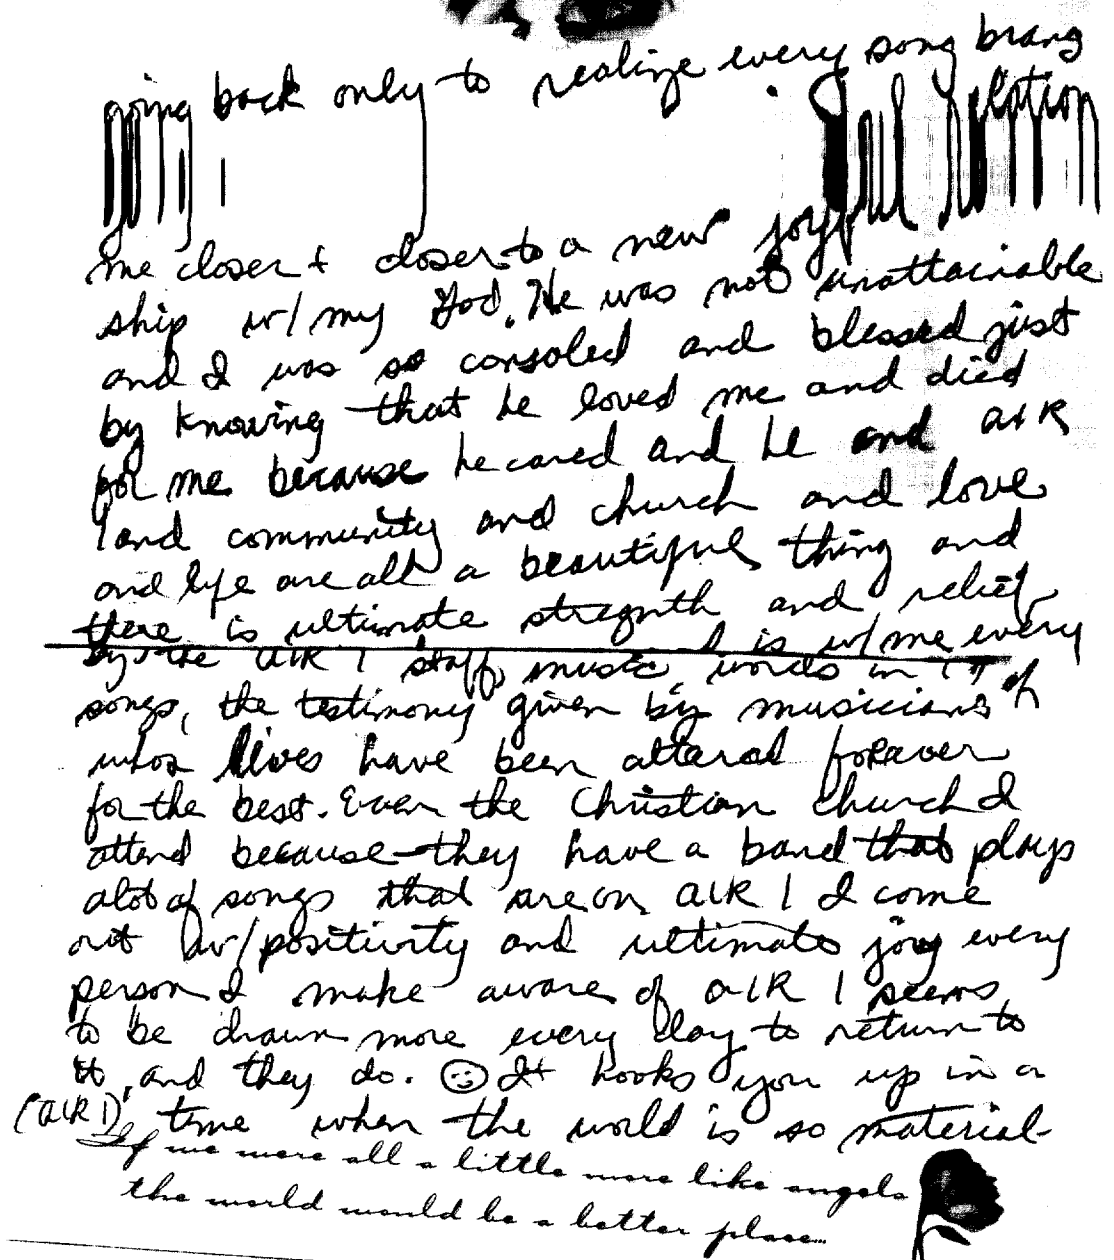 going back only to realize every song brang
me closer + closer to a new joyful relation
ship w/ my God. He was not unattainable
and I was so consoled and blessed just
by knowing that he loved me and died
for me because he cared and he and aIR
1 and community and church and love
and life are all a beautiful thing and
there is ultimate stregnth and relief
is w/me every
by the aIR 1 staff, music, words in
songs, the testimony given by musicians of
whos lives have been altered forever
for the best. Even the Christian church I
attend because they have a band that plays
alot of songs that are on aIR 1 I come
out w/positivity and ultimate joy every
person I make aware of aIR 1 seems
to be drawn more every day to return to
it, and they do. It hooks you up in a
(aIR 1) time when the world is so material-
If we were all a little more like angels
the world would be a better place...